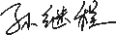 孙继程